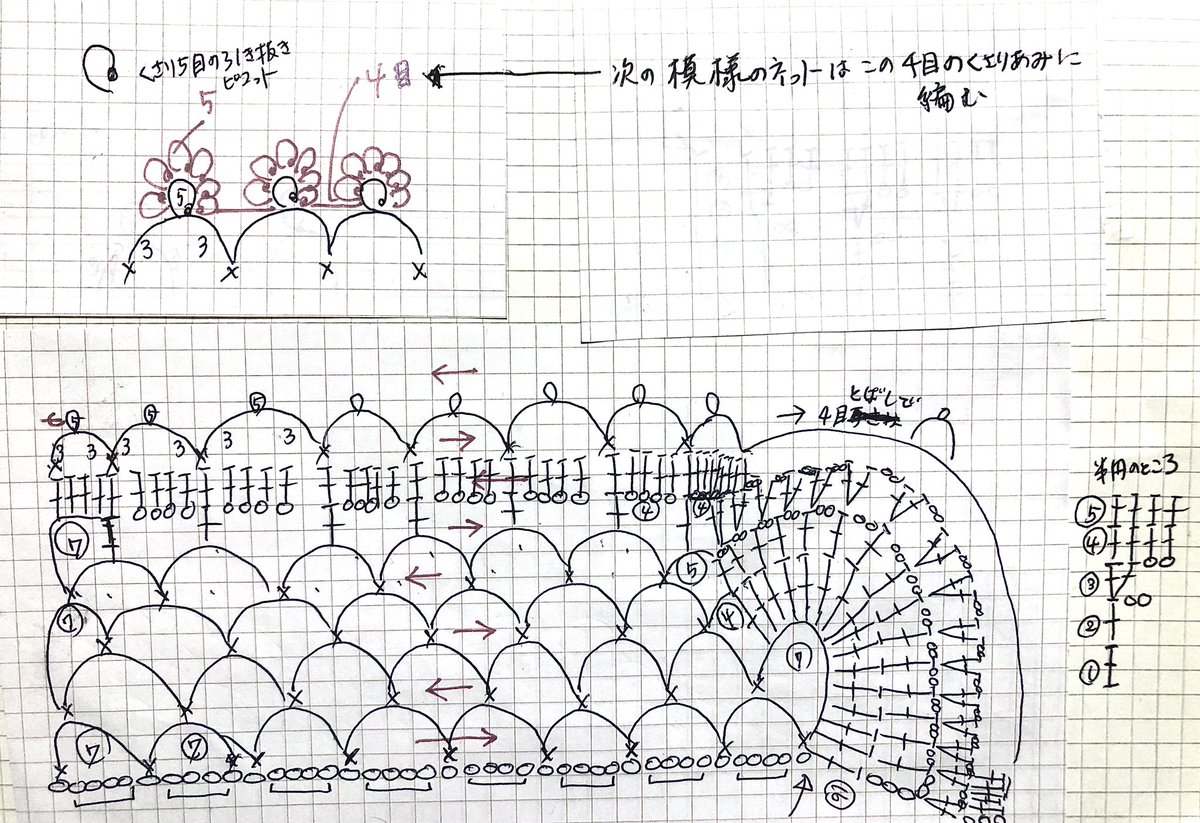 くさり5目の引き抜き
ピコット
4目
次の模様のネットはこの4目のくさりあみに
編む
5
5
3 3
5 5 5
3 3 3 3 3
→ 4目
とばして
半円のところ
⑤
④
③
②
①
④ ④
⑦
⑤
⑦
④
⑦
⑦ ⑦
⑯